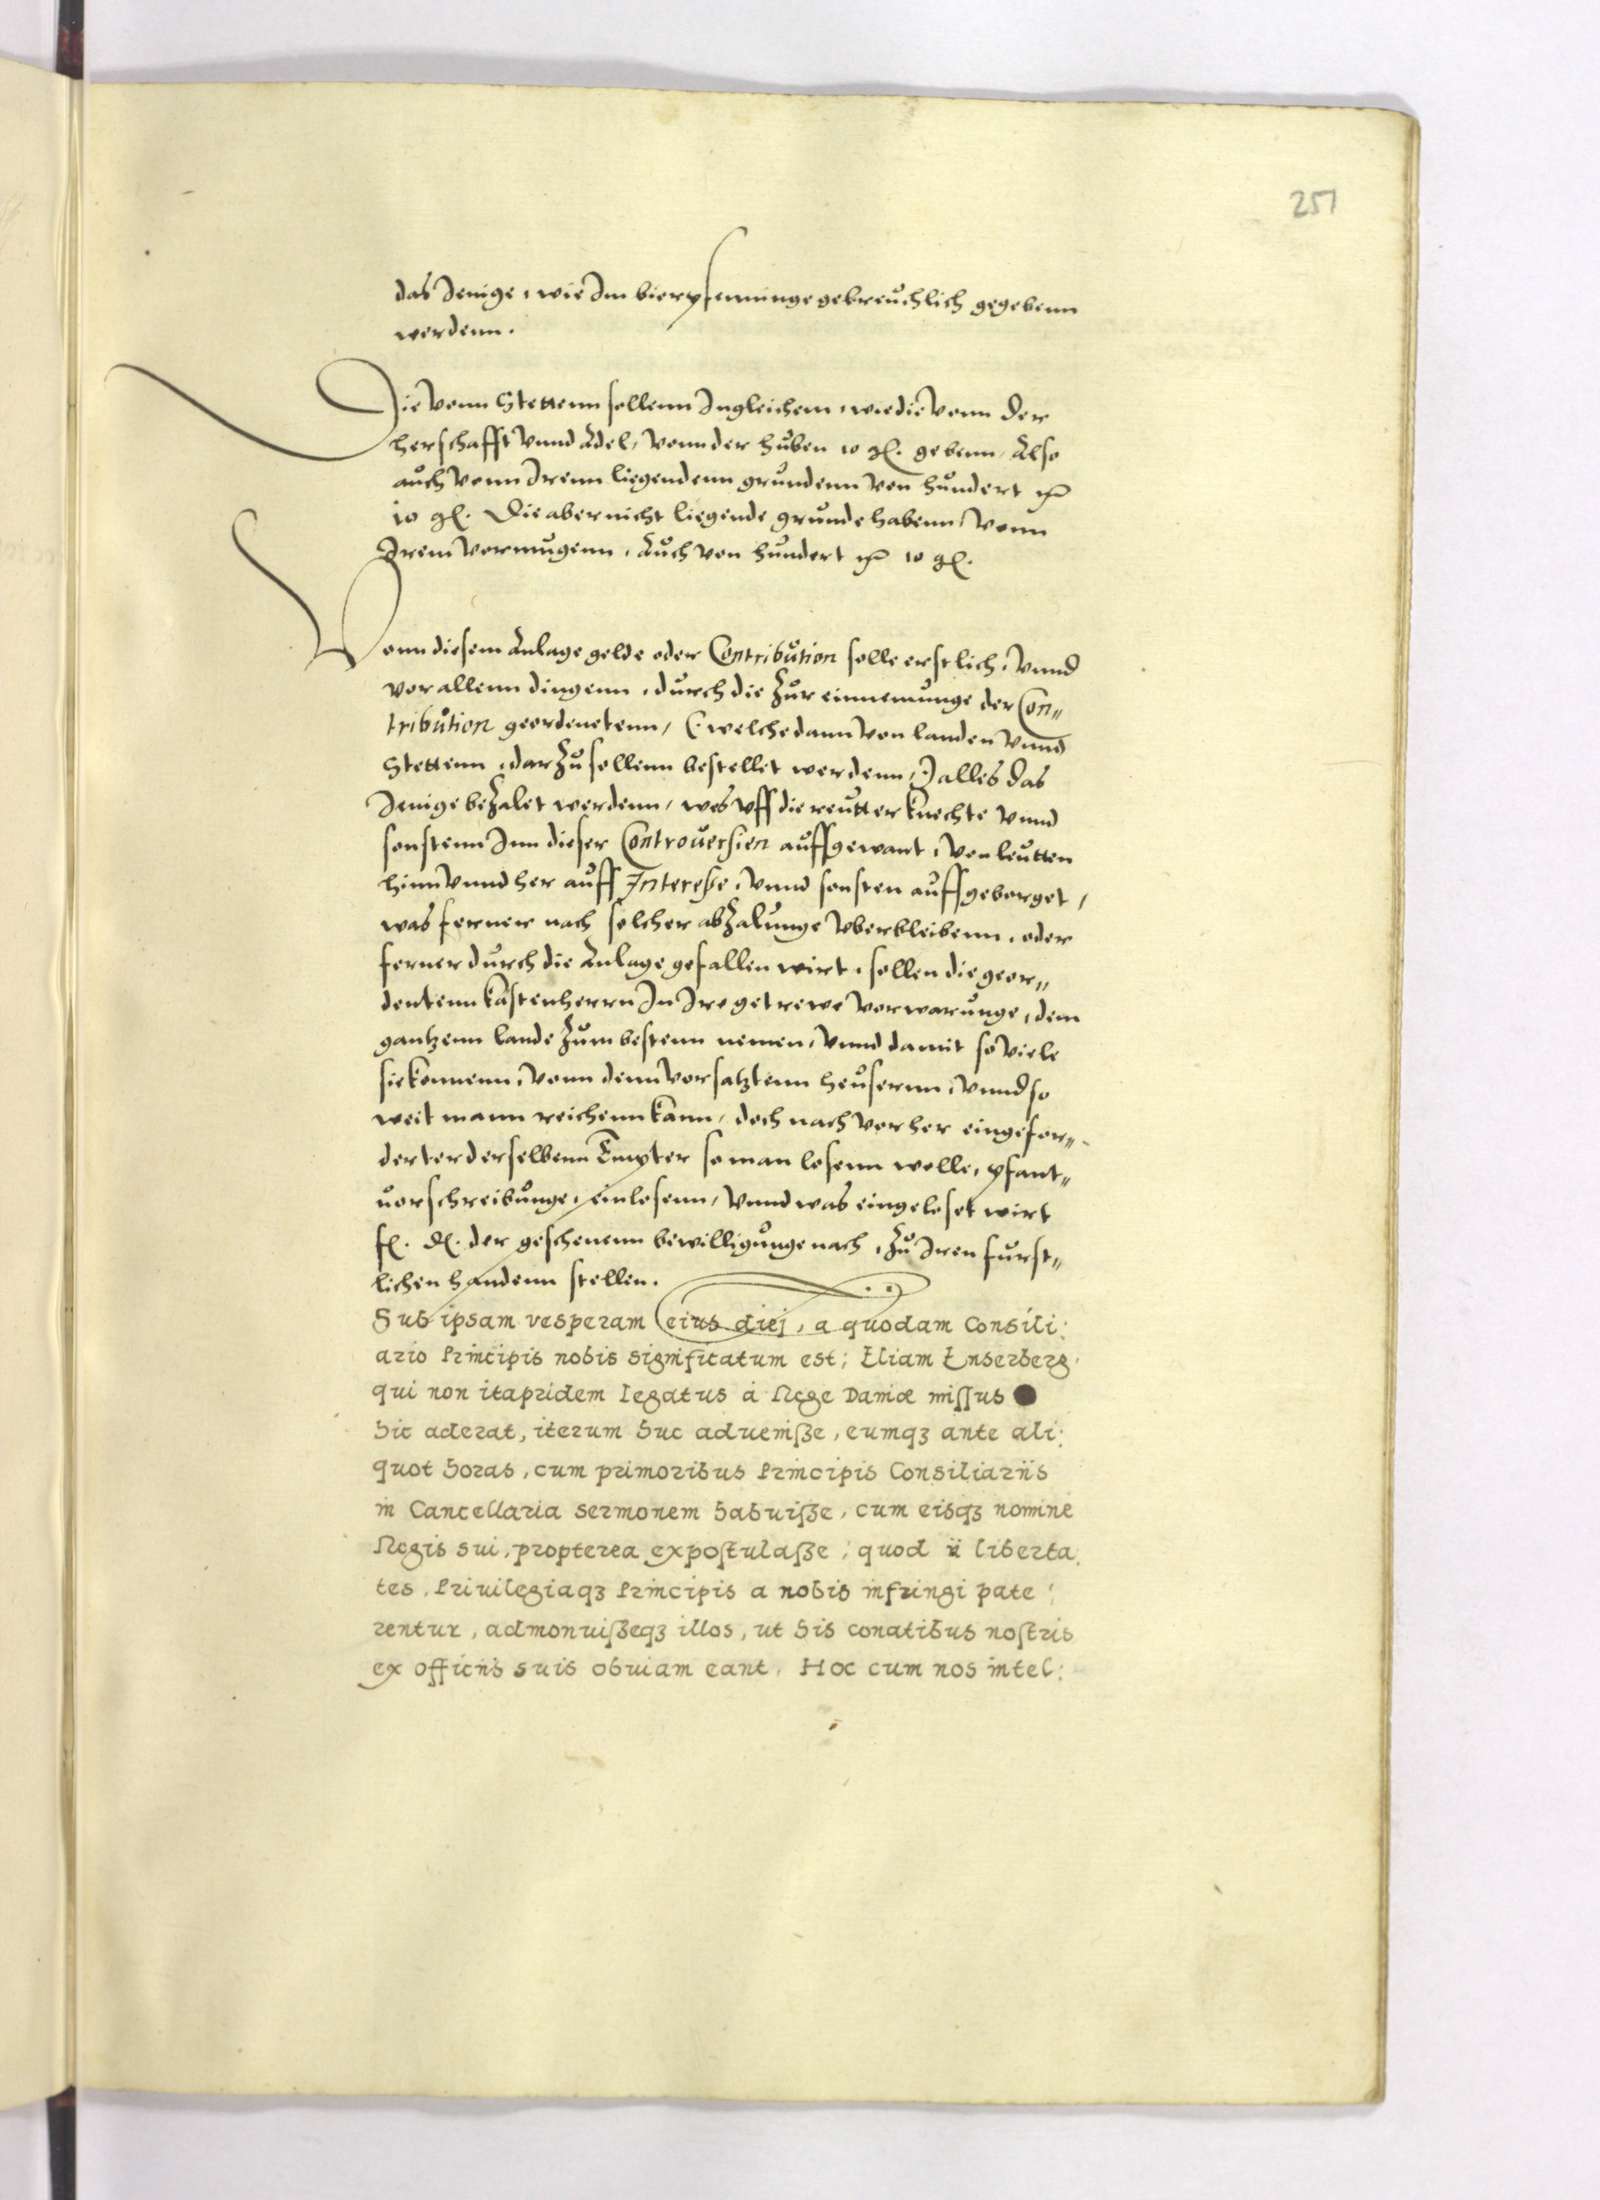 251
das Jenige, wie Im bierpfenninge gebreuchlich gegebenn
werdenn.
Die vonn Stettenn sollenn Ingleichem, wie die vonn der
herschafft vnnd Adel, vonn der huben 10 gl. gebenn, Also
auch vonn Irenn liegendenn grundenn von hundert
10 gl. Die aber nicht liegende grunde habenn, vonn
Irem vormugenn, Auch von hundert 10 gl.
Vonn diesem Anlage gelde oder Contribution solle erstlich, vnnd
vor allenn dingenn, durch die zur einnemunge der Con„
tribution geordenetenn, (: welche dann von landen vnnd
Stettenn, darzu sollenn bestellet werdenn, :) alles das
Jenige bezalet werdenn, wes vff die reutter knechte vnnd
sonstenn Inn dieser Controuersien auffgewant, von leutten
hinn vnnd her auff Interesse, vnnd sonsten auffgeborget,
was ferner nach solcher abzalunge vberbleibenn, oder
ferner durch die Anlage gefallen wirt, sollen die geor„
dentenn kastenherrn In Ire getrewe vorwarunge, dem
gantzenn lande zum bestenn nemen, vnnd damit so viele
sie konnenn, vonn denn vorsatztenn heusernn, vnnd so
weit mann reichenn kann, doch nach vorher eingefor„
derter derselbenn Empter so man losenn wolle, pfant„
uorschreibunge, einlosenn, vnnd was eingeloset wirt
f. d. der geschenenn bewilligunge nach, zu Iren furst„
lichen handenn stellen.
Sub ipsam vesperam eius diej, a quodam Consili:
ario Principis nobis significatum est; Eliam Enserberg
qui non itapridem legatus à Rege Daniæ missus
hic aderat, iterum huc aduenisse, eumqꝫ ante ali:
quot horas, cum primoribus Principis Consiliariis
in Cancellaria sermonem habuisse, cum eisqꝫ nomine
Regis sui, propterea expostulasse, quod ii liberta:
tes, Priuilegiaqꝫ Principis a nobis infringi pate:
rentur, admonuisseqꝫ illos, ut his conatibus nostris
ex officiis suis obuiam eant. Hoc cum nos intel: